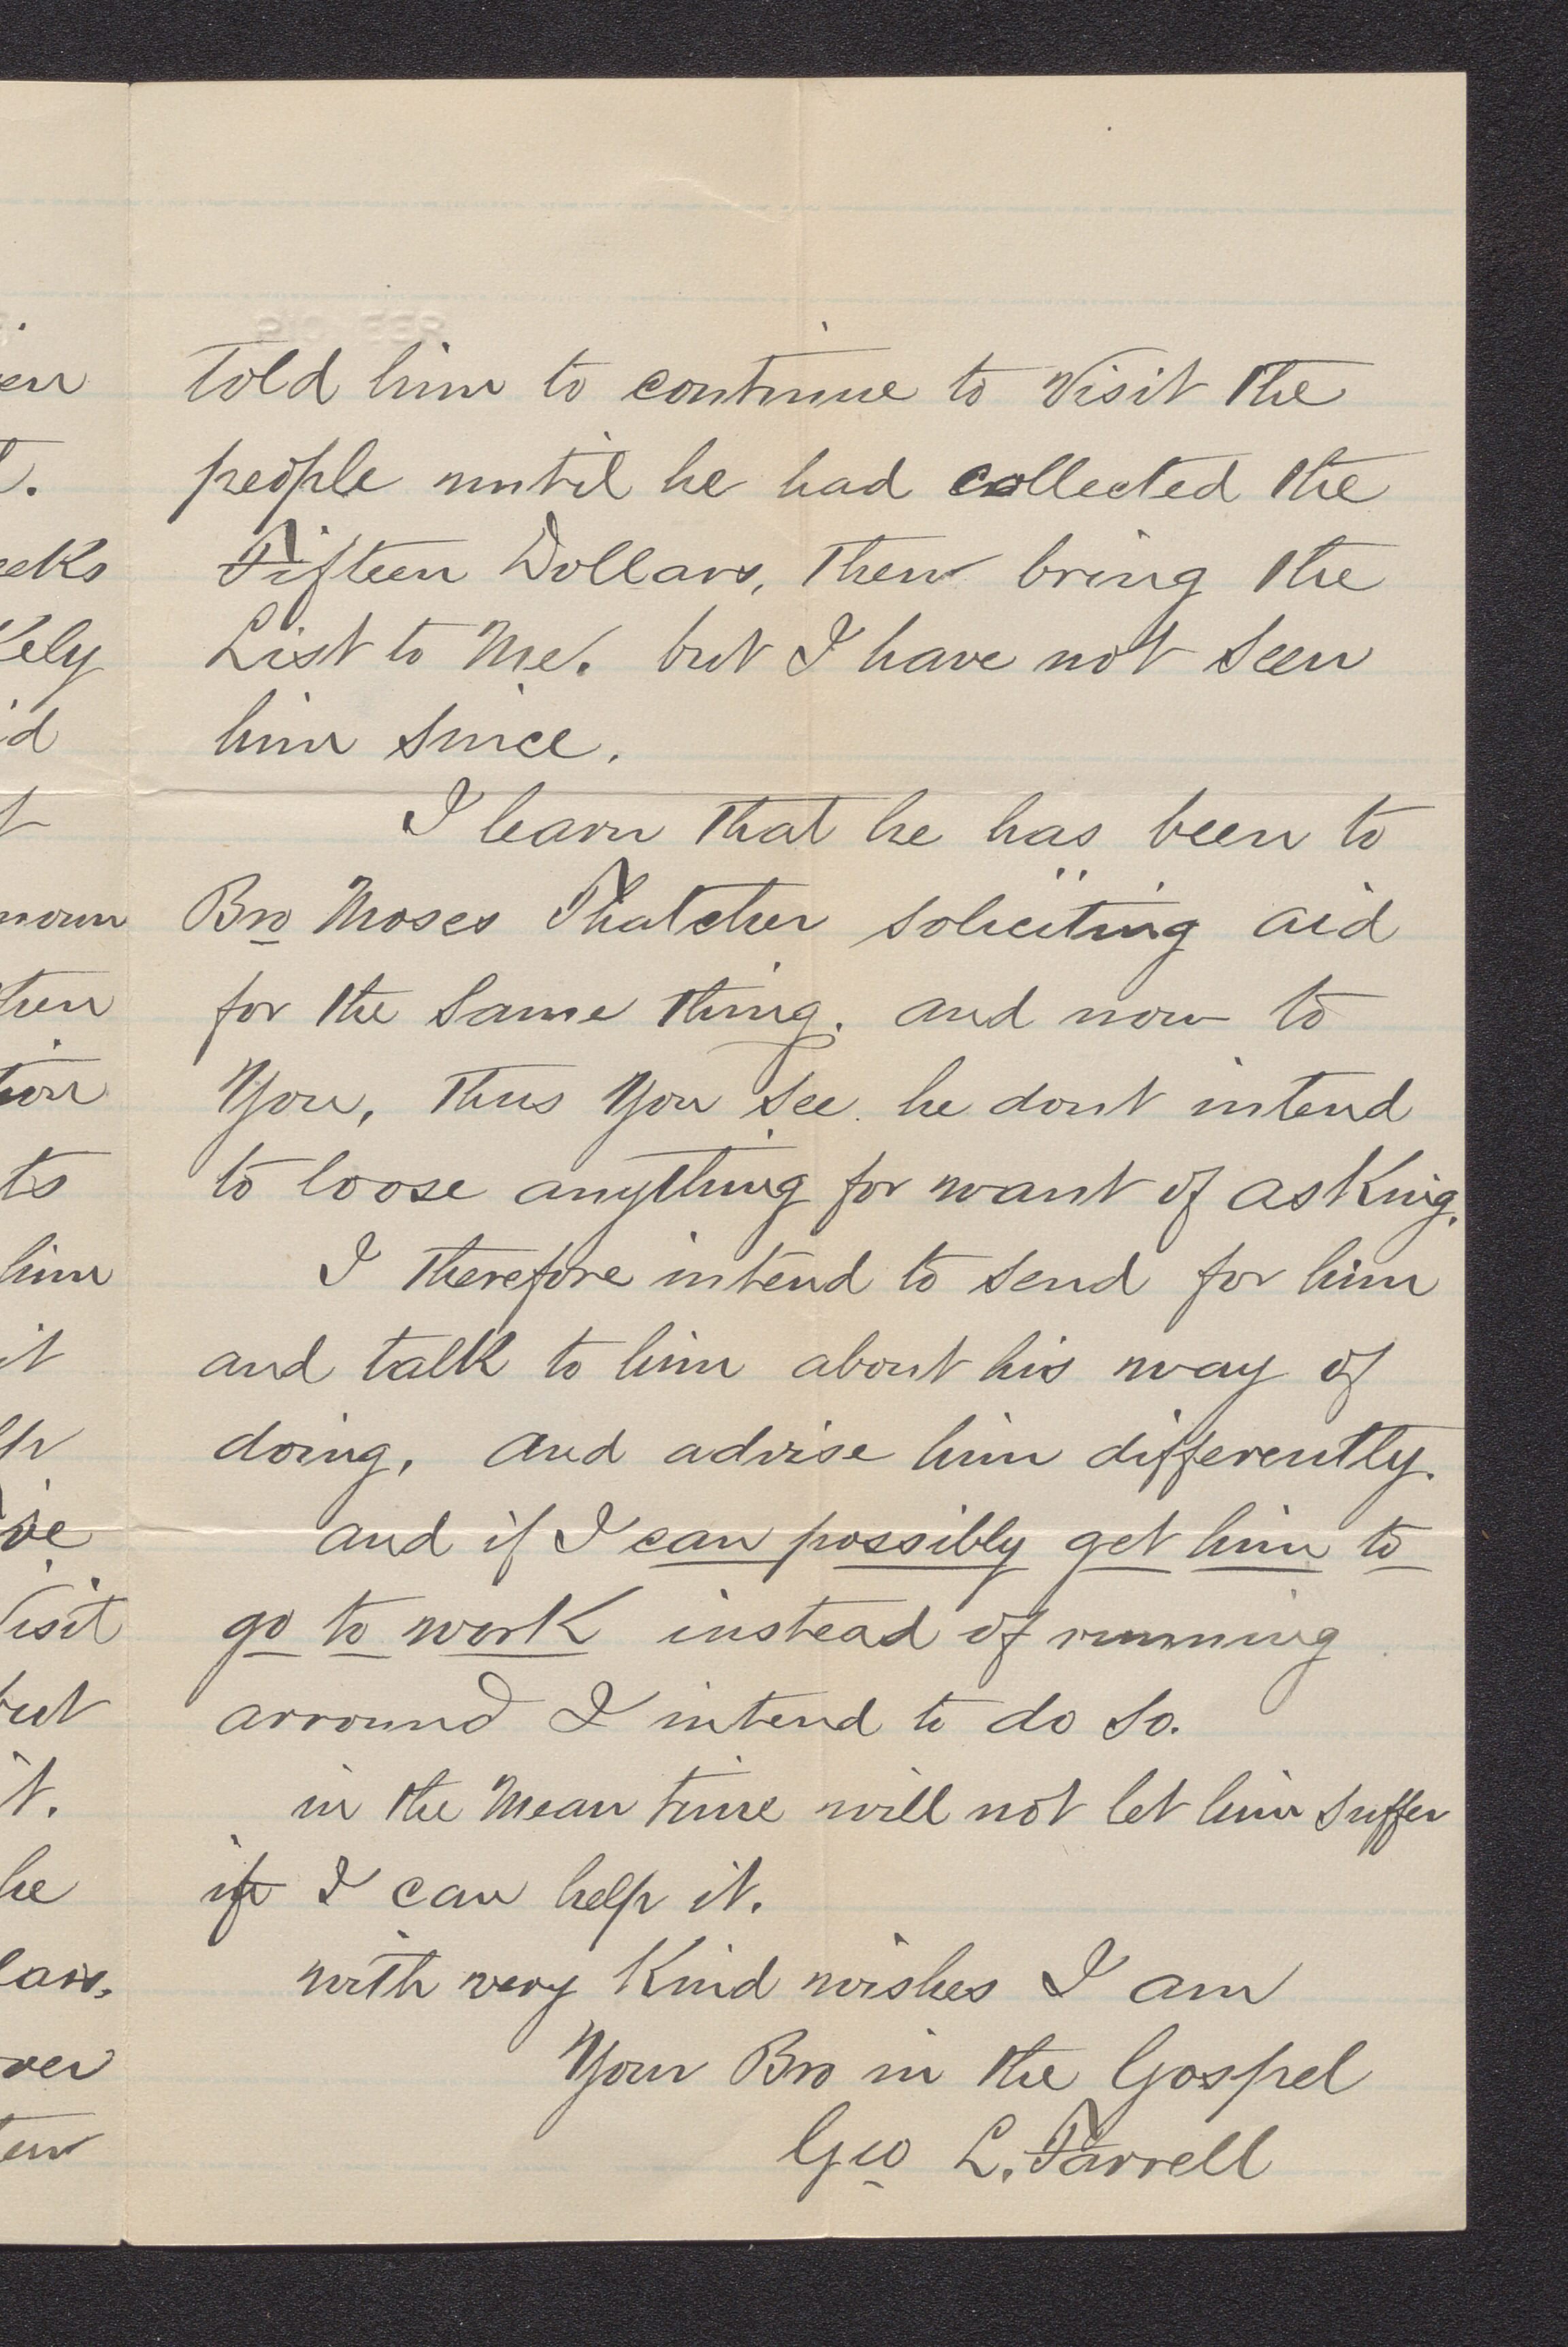 told him to continue to visit the
people until he had collected the
Fifteen Dollars, then bring the
List to Me. but I have not seen
him since.
I learn that he has been to
Bro Moses Thatcher soliciting aid
for the same thing. and now to
You, thus You see he dont intend
to loose anything for want of asking.
I therefore intend to send for him
and talk to him about his way of
doing, and advise him differently.
and if I can possibly get him to
go to work instead of running
arround I intend to do so.
in the Mean time will not let him suffer
if I can help it.
with very Kind wishes I am
Your Bro in the Gospel
Geo L. Farrell